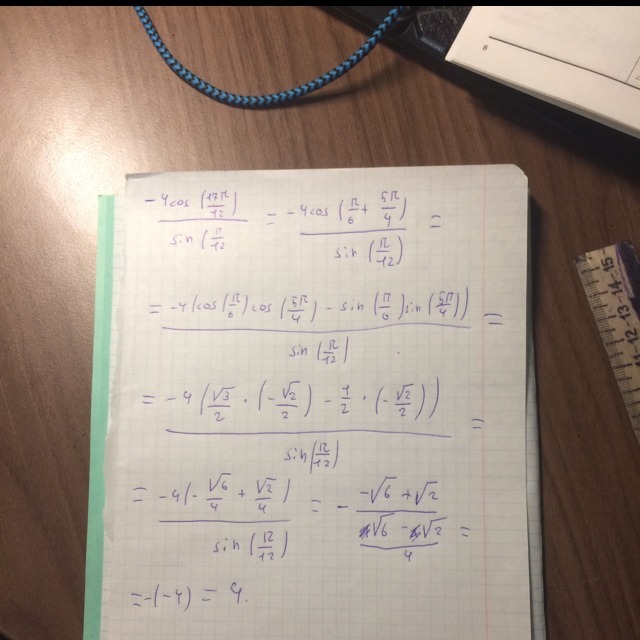 -4cos(17π/12)/sin(π/12) = -4cos(π/6 + 5π/4)/sin(π/12) =
= -4(cos(π/6)cos(5π/4) - sin(π/6)sin(5π/4))/sin(π/12) =
= -4(√3/2 · (-√2/2) - 1/2 · (-√2/2))/sin(π/12) =
= -4(-√6/4 + √2/4)/sin(π/12) = - (-√6 + √2)/((√6 - √2)/4) =
= -(-4) = 4.
15
14
13
12
11